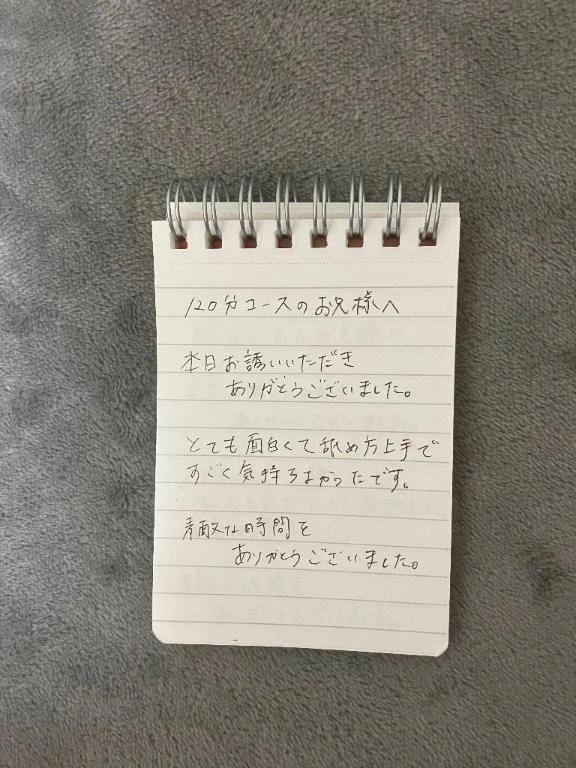 120分コースのお兄様へ
本日お誘いいただき
ありがとうございました。
とても面白くて舐め方上手で
すごく気持ちよかったです。
素敵な時間を
ありがとうございました。